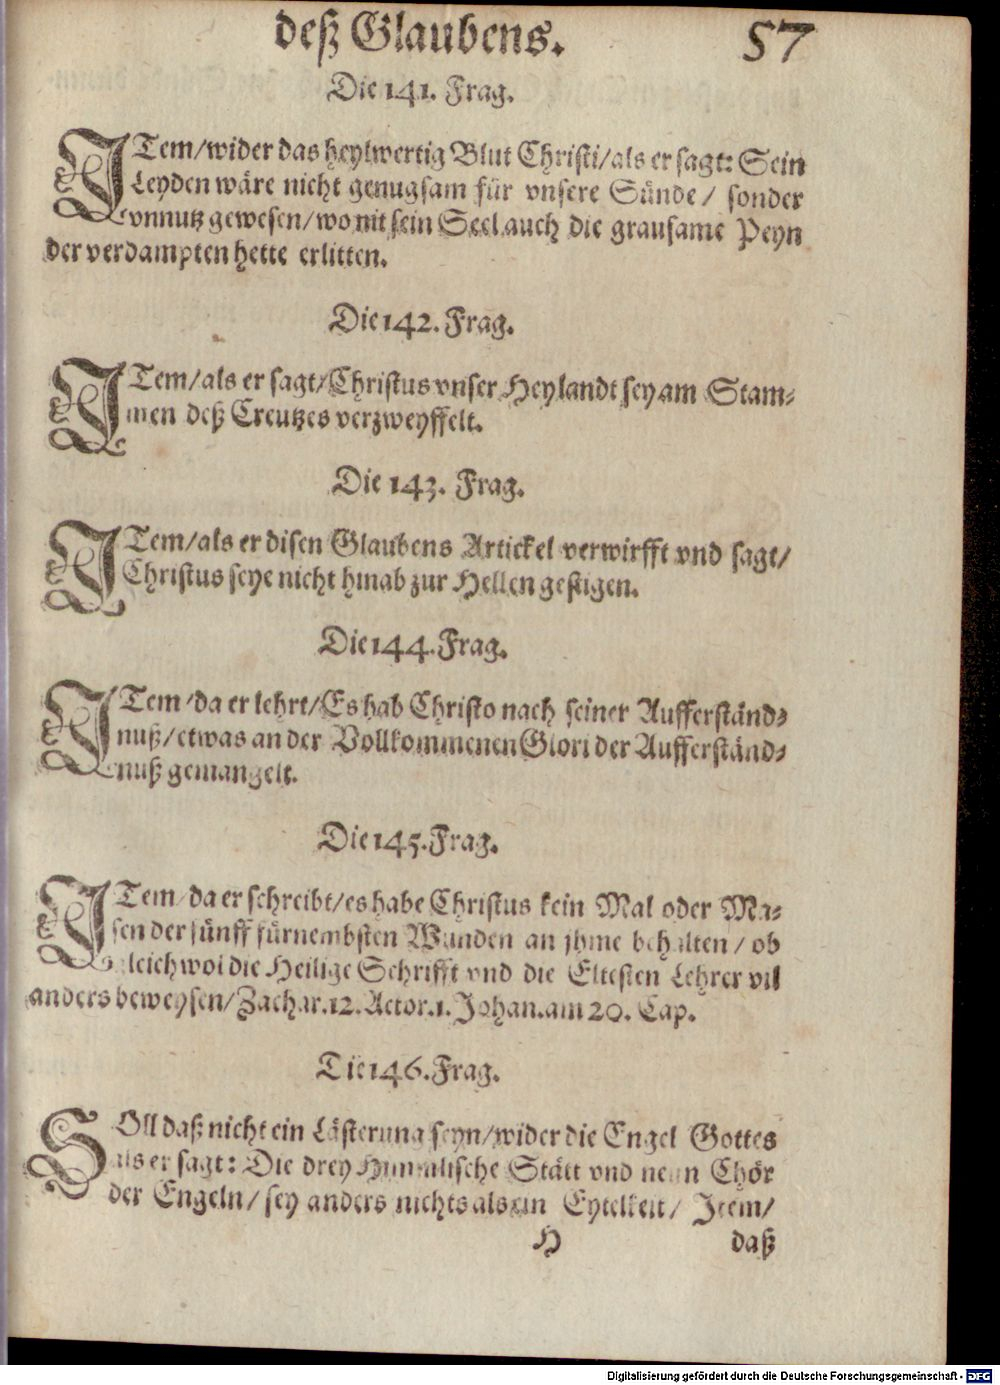 deß Glaubens. 57
Die 141. Frag.
ITem/wider das heylwertig Blut Christi/als er sagt: Sein
Leyden wäre nicht genugsam für vnsere Sünde/ sonder
vnnutz gewesen/wo nit sein Seel auch die grausame Peyn
der verdampten hette erlitten.
Die 142. Frag.
ITem/als er sagt/Christus vnser Heylandt sey am Stam-
men deß Creutzes verzweyffelt.
Die 143. Frag.
ITem/als er disen Glaubens Artickel verwirfft vnd sagt/
Christus seye nicht hinab zur Hellen gestigen.
Die 144. Frag.
ITem/da er lehrt/Es hab Christo nach seiner Aufferständ-
nuß/etwas an der Vollkommenen Glori der Aufferständ-
nuß gemangelt.
Die 145. Frag.
ITem/da er schreibt/es habe Christus kein Mal oder Ma-
sen der fünff fürnembsten Wunden an jhme behalten/ ob
gleichwol die Heilige Schrifft vnd die Eltesten Lehrer vil
anders beweysen/Zachar.12. Actor.1. Johan.am 20. Cap.
Die 146. Frag.
SOll daß nicht ein Lästerung seyn/wider die Engel Gottes
als er sagt: Die drey Himmlische Stätt vnd neun Chör
der Engeln/ sey anders nichts als ein Eytelkeit/ Item/
H daß
Digitalisierung gefördert durch die Deutsche Forschungsgemeinschaft - DFG